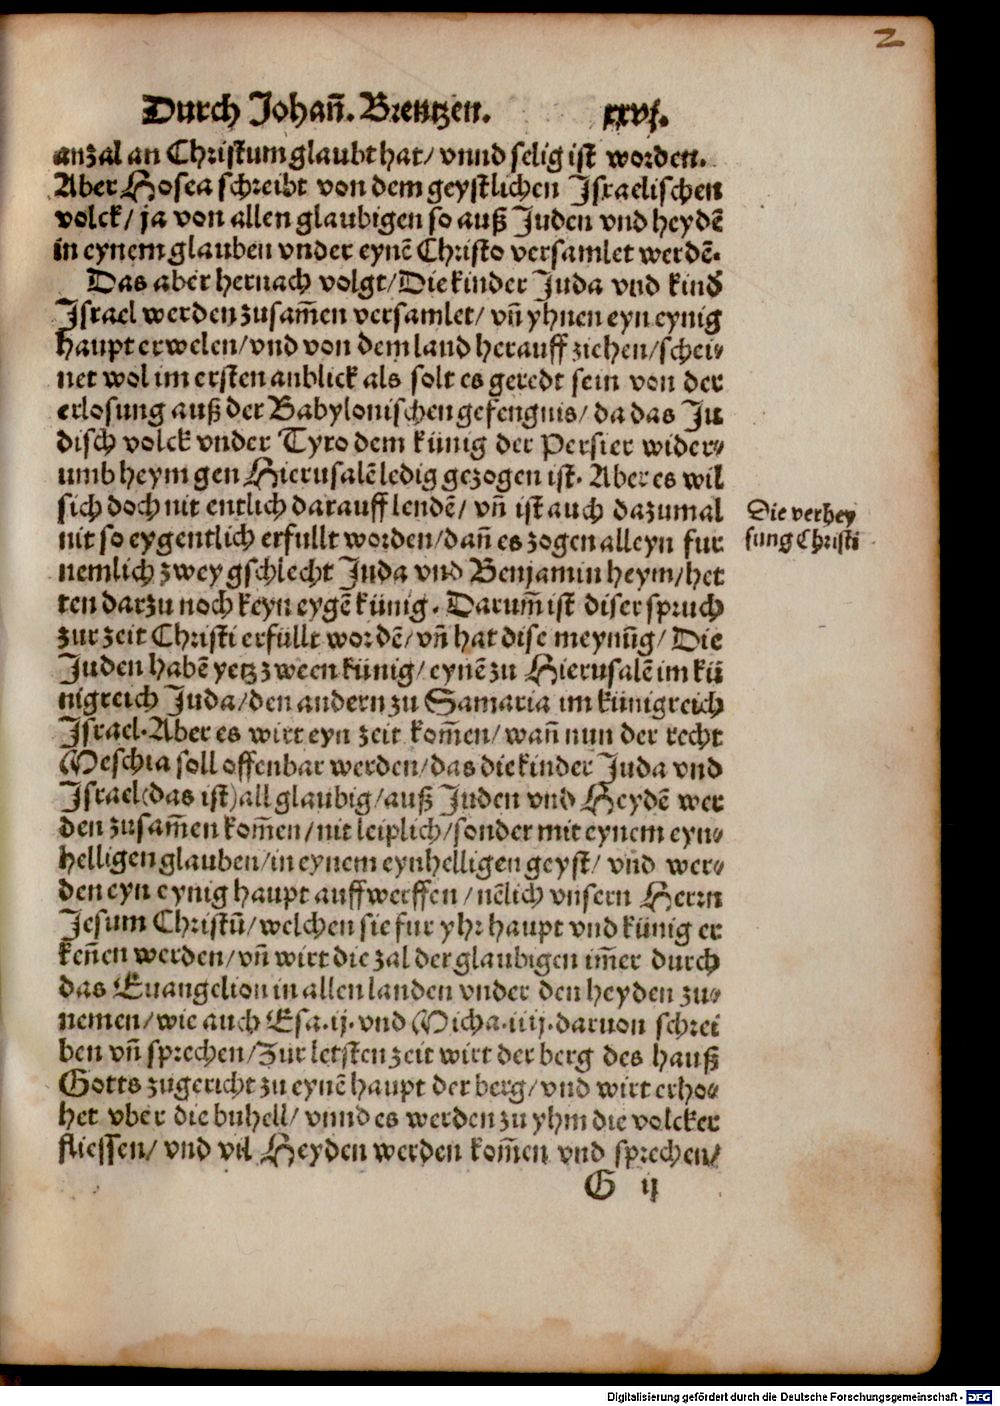 2
Durch Johañ. Brentzen. xxvj.
anzal an Christum glaubt hat/ vnnd selig ist worden.
Aber Hosea schreibt von dem geystlichen Israelischen
volck/ ja von allen glaubigen so auß Juden vnd heydē
in eynem glauben vnder eynē Christo versamlet werdē.
Das aber hernach volgt/ Die kinder Juda vnd kind
Israel werden zusam̃en versamlet/ vñ yhnen eyn eynig
haupt erwelen/ vnd von dem land herauff ziehen/ schei⸗
net wol im ersten anblick als solt es geredt sein von der
erlosung auß der Babylonischen gefengnis/ da das Ju
disch volck vnder Tyro dem künig der Persier wider⸗
umb heym gen Hierusalē ledig gezogen ist. Aber es wil
sich doch nit entlich darauff lendē/ vñ ist auch dazumal
nit so eygentlich erfullt worden/ dañ es zogen alleyn fur
nemlich zwey gschlecht Juda vnd Benjamin heym/ het
ten darzu noch keyn eygē künig. Darum̃ ist diser spruch
zur zeit Christi erfüllt wordē/ vñ hat dise meynũg/ Die
Juden habē yetz zween künig/ eynē zu Hierusalē im kü
nigreich Juda/ den andern zu Samaria im künigreich
Israel. Aber es wirt eyn zeit kom̃en/ wañ nun der recht
Meschia soll offenbar werden/ das die kinder Juda vnd
Israel (das ist) all glaubig/ auß Juden vnd Heydē wer
den zusam̃en kom̃en/ nit leiplich/ sonder mit eynem eyn⸗
helligen glauben/ in eynem eynhelligen geyst/ vnd wer⸗
den eyn eynig haupt auffwerffen/ nēlich vnsern Herrn
Jesum Christũ/ welchen sie fur yhr haupt vnd künig er
keñen werden/ vñ wirt die zal der glaubigen im̃er durch
das Euangelion in allen landen vnder den heyden zu⸗
nemen/ wie auch Esa. ij. vnd Micha. iiij. daruon schrei
ben vñ sprechen/ Zur letsten zeit wirt der berg des hauß
Gotts zugericht zu eynē haupt der berg/ vnd wirt erho⸗
het vber die buhell/ vnnd es werden zu yhm die volcker
fliessen/ vnd vil Heyden werden kom̃en vnd sprechen/
G ij
Die verhey
sung Christi
Digitalisierung gefördert durch die Deutsche Forschungsgemeinschaft - DFG